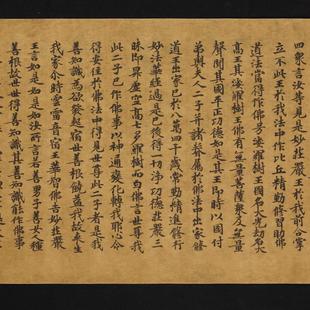 四眾言汝等見是妙莊嚴王於我前合掌
立不此王於我法中作比丘精勤修習助佛
道法當得作佛号娑羅樹王國名大光劫名大
高王其娑羅樹王佛有無量菩薩眾及無量
聲聞其國平正功德如是其王即時以國付
弟與夫人二子并諸眷屬於佛法中出家修
道王出家已於八萬四千歲常勤精進修行
妙法華經過是已後得一切淨功德莊嚴三
昧即昇虛空高七多羅樹而白佛言世尊我
此二子已作佛事以神通變化轉我耶心令
得安住於佛法中得見世尊此二子者是我
善知識為欲發起宿世善根饒益我故來生
我家尒時雲雷音宿王華智佛告妙莊嚴
王言如是如是如汝所言若善男子善女人種
善根故世世得善知識其善知識能作佛事